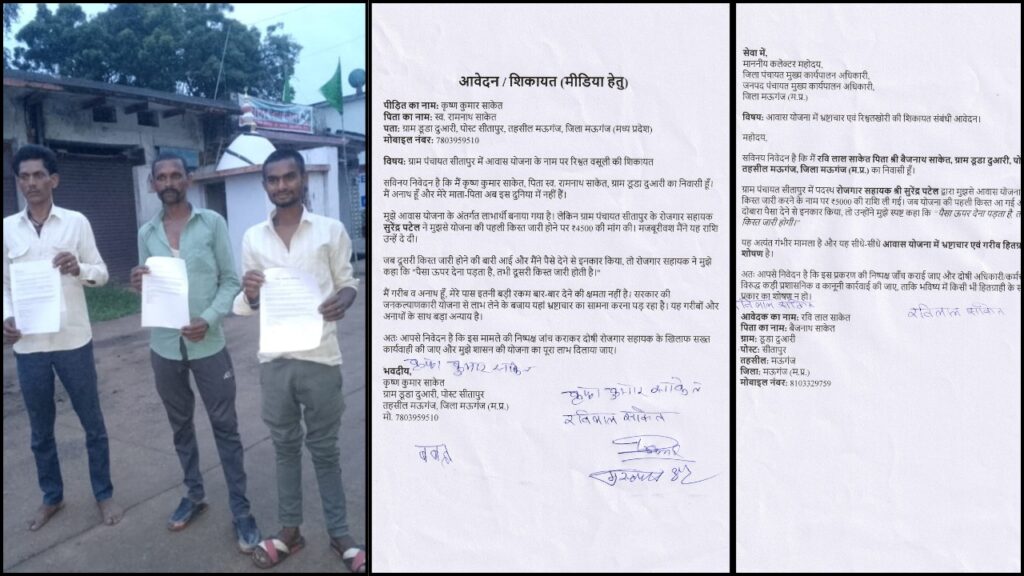 आवेदन / शिकायत (मीडिया हेतु)
पीड़ित का नाम: कृष्ण कुमार साकेत
पिता का नाम: स्व. रामनाथ साकेत
पता: ग्राम डूडा दुआरी, पोस्ट सीतापुर, तहसील मऊगंज, जिला मऊगंज (मध्य प्रदेश)
मोबाईल नंबर: 7803959510
विषय: ग्राम पंचायत सीतापुर में आवास योजना के नाम पर रिश्वत वसूली की शिकायत
सविनय निवेदन है कि मैं कृष्ण कुमार साकेत, पिता स्व. रामनाथ साकेत, ग्राम डूडा दुआरी का निवासी हूँ।
मैं अनाथ हूँ और मेरे माता-पिता अब इस दुनिया में नहीं है।
मुझे आवास योजना के अंतर्गत लाभार्थी बनाया गया है। लेकिन ग्राम पंचायत सीतापुर के रोजगार सहायक
सुरेंद्र पटेल ने मुझसे योजना की पहली किस्त जारी होने पर ₹4500 की मांग की। मजबूरीवश मैंने यह राशि
उन्हें दे दी।
जब दूसरी किस्त जारी होने की बारी आई और मैंने पैसे देने से इनकार किया, तो रोजगार सहायक ने मुझे
कहा कि "पैसा ऊपर देना पड़ता है, तभी दूसरी किस्त जारी होती है।"
मैं गरीब व अनाथ हूँ, मेरे पास इतनी बड़ी रकम बार-बार देने की क्षमता नहीं है। सरकार की
जनकल्याणकारी योजना से लाभ लेने के बजाय यहां भ्रष्टाचार का सामना करना पड़ रहा है। यह गरीबों और
अनाथों के साथ बड़ा अन्याय है।
अतः आपसे निवेदन है कि इस मामले की निष्पक्ष जांच कराकर दोषी रोजगार सहायक के खिलाफ सख्त
कार्यवाही की जाए और मुझे शासन की योजना का पूरा लाभ दिलाया जाए।
भवदीय,
कृष्ण कुमार साकेत
ग्राम डूडा दुआरी, पोस्ट सीतापुर
तहसील मऊगंज, जिला मऊगंज (म.प्र.)
मो. 7803959510
कुमार साकेत
रविलाल साकेत
सेवा में,
माननीय कलेक्टर महोदय,
जिला पंचायत मुख्य कार्यपालन अधिकारी,
जनपद पंचायत मुख्य कार्यपालन अधिकारी,
जिला मऊगंज (म.प्र.)
विषय: आवास योजना में भ्रष्टाचार एवं रिश्वतखोरी की शिकायत संबंधी आवेदन।
महोदय,
सविनय निवेदन है कि मैं रवि लाल साकेत पिता श्री बैजनाथ साकेत, ग्राम डूडा दुआरी,
तहसील मऊगंज, जिला मऊगंज (म.प्र.) का निवासी हूँ।
ग्राम पंचायत सीतापुर में पदस्थ रोजगार सहायक श्री सुरेंद्र पटेल द्वारा मुझसे आवास योजना
किस्त जारी करने के नाम पर ₹5000 की राशि ली गई। जब योजना की पहली किस्त आ गई
दोबारा पैसा देने से इनकार किया, तो उन्होंने मुझे स्पष्ट कहा कि "पैसा ऊपर देना पड़ता है,
किस्त जारी होगी।"
यह अत्यंत गंभीर मामला है और यह सीधे-सीधे आवास योजना में भ्रष्टाचार एवं गरीब
शोषण है।
अतः आपसे निवेदन है कि इस प्रकरण की निष्पक्ष जाँच कराई जाए और दोषी
विरुद्ध कड़ी प्रशासनिक व कानूनी कार्रवाई की जाए, ताकि भविष्य में किसी भी हितग्राही के
प्रकार का शोषण न हो।
रविलाल साकेत
आवेदक का नाम: रवि लाल साकेत
पिता का नाम: बैजनाथ साकेत
ग्राम: डूडा दुआरी
पोस्ट: सीतापुर
तहसील: मऊगंज
जिला: मऊगंज (म.प्र.)
मोबाईल नंबर: 8103329759